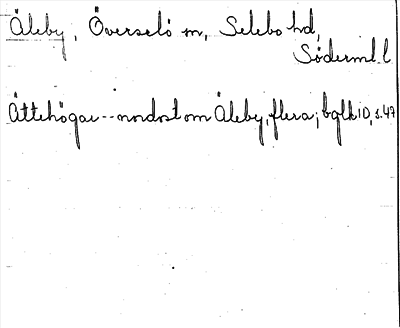 Äleby, Överselö sn, Selebo hd,
Söderml. l
Ättehögar -- nordost om Äleby, flera; bglk 10, s. 47